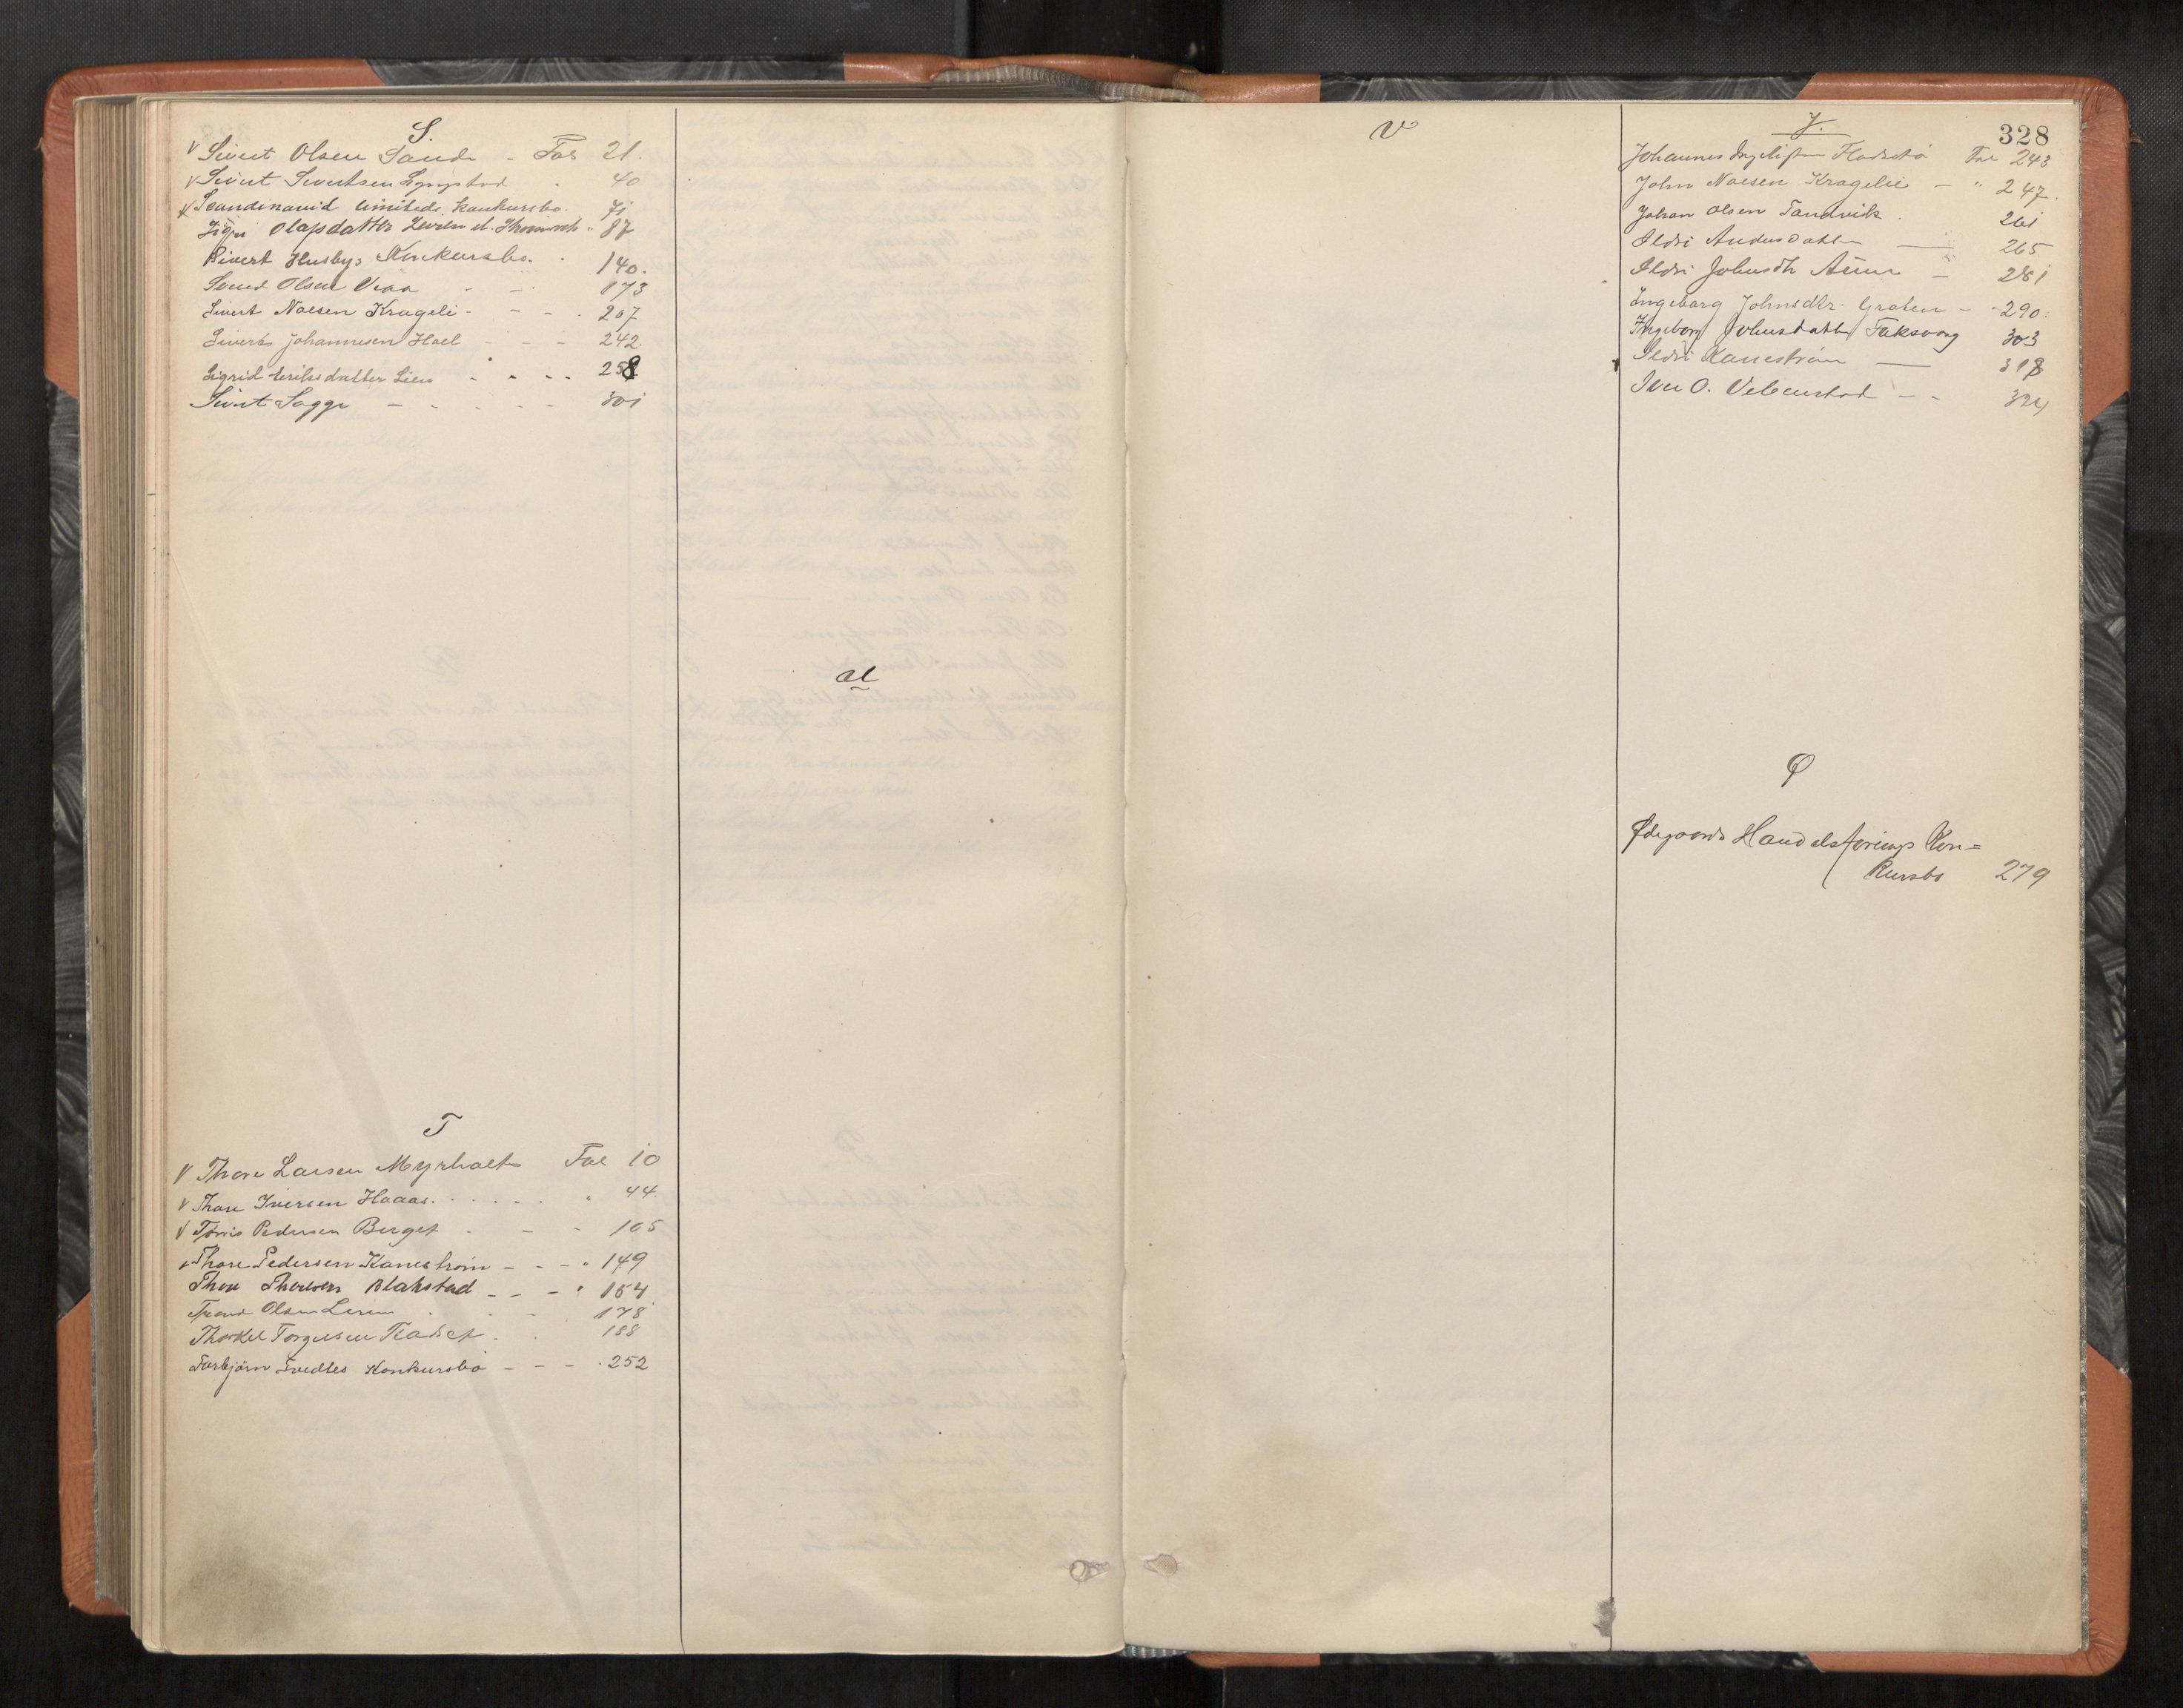 S.
V Sivert Olsen Sande - Fol 21.
V Sivert Sivertsen Lyngstad . 40
V Scandinavid limiteds Konkursbo. 71
Olafsdatter " 87
Sivert Husbys Konkursbo. . 140.
Svend Olsen Viaa - - 173
Sivert Noesen Krageli - - - . 207
Siverts Johannesen Hoel - - - 242.
Sigrid Eriksdatter Lien - - - - 258
Sivert Sagge - - - - - - 301
T
V Thore Larsen Myrholt Fol 10
V Thore Iversen Haaas. . . . . . " 44.
V Tøris Pedersen Berget - - - 105
V Thore Pedersen Kanestrøm - - - " 149
Thore Thoresen Blakstad - - - " 154
Trond Olsen . . - 178
Thorkel Torgersen . . 188
Torbjørn Tvedtes Konkursbo - - - . 252
U
V
328
J.
Johannes Flodstø Fol 243
John Noesen Kragelie - " 247.
Johan Olsen Sandvik . 261
Ildri Andersdatter — 265
Ildri Johnsdtr - 281
Ingeborg Johnsdtr. Groten - . 290.
Ingeborg Johnsdatter Faksvaag 303
Ildri Kanestrøm — 318
Iver O. Vebenstad - - 324
Ø
Ødegaards Handelsforenings Kon=
kursbo 279